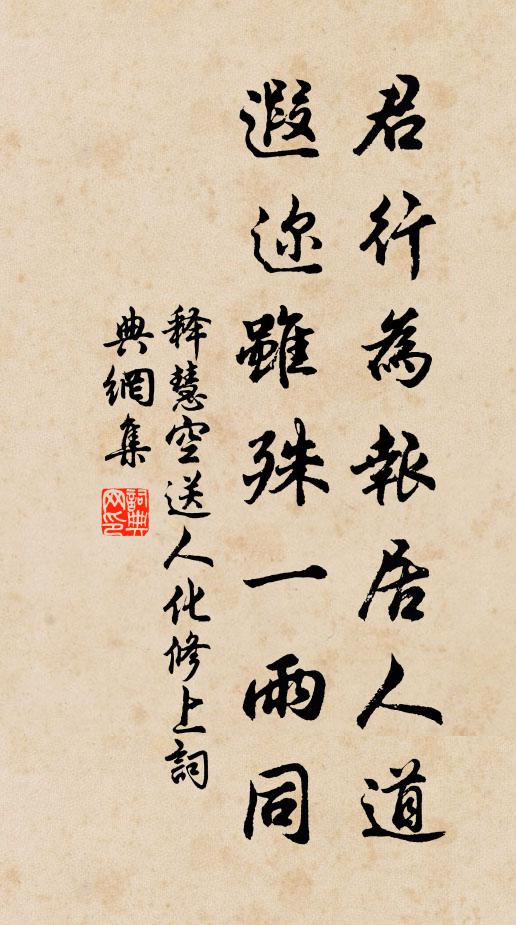 君行為報居人道
遐迩雖殊一雨同
釋慧空送人化修上詞
典網集
詞典網印